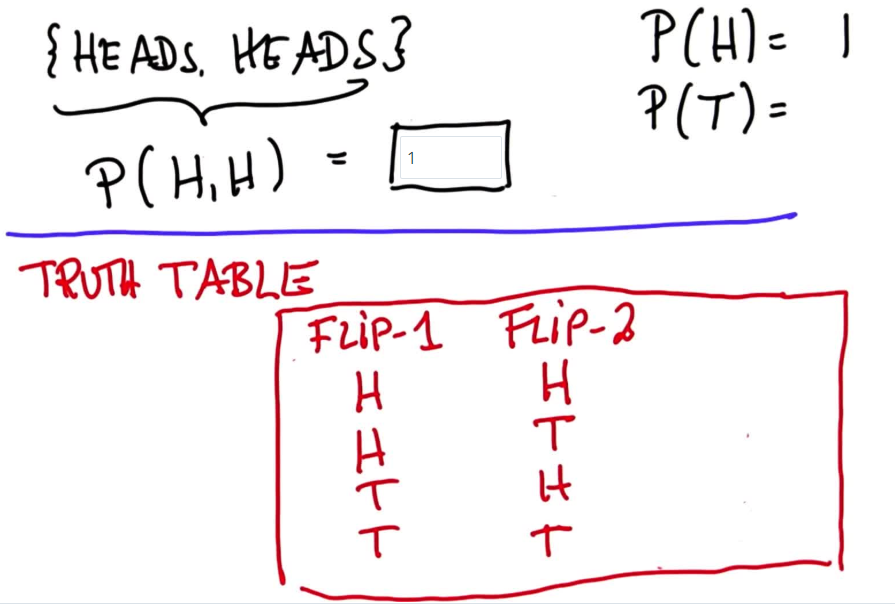 {HEADS, HEADS}
P(H) = 1
P(T) =
P(H,H) = 1
TRUTH TABLE
FLiP-1 FLiP-2
H H
H T
T H
T T